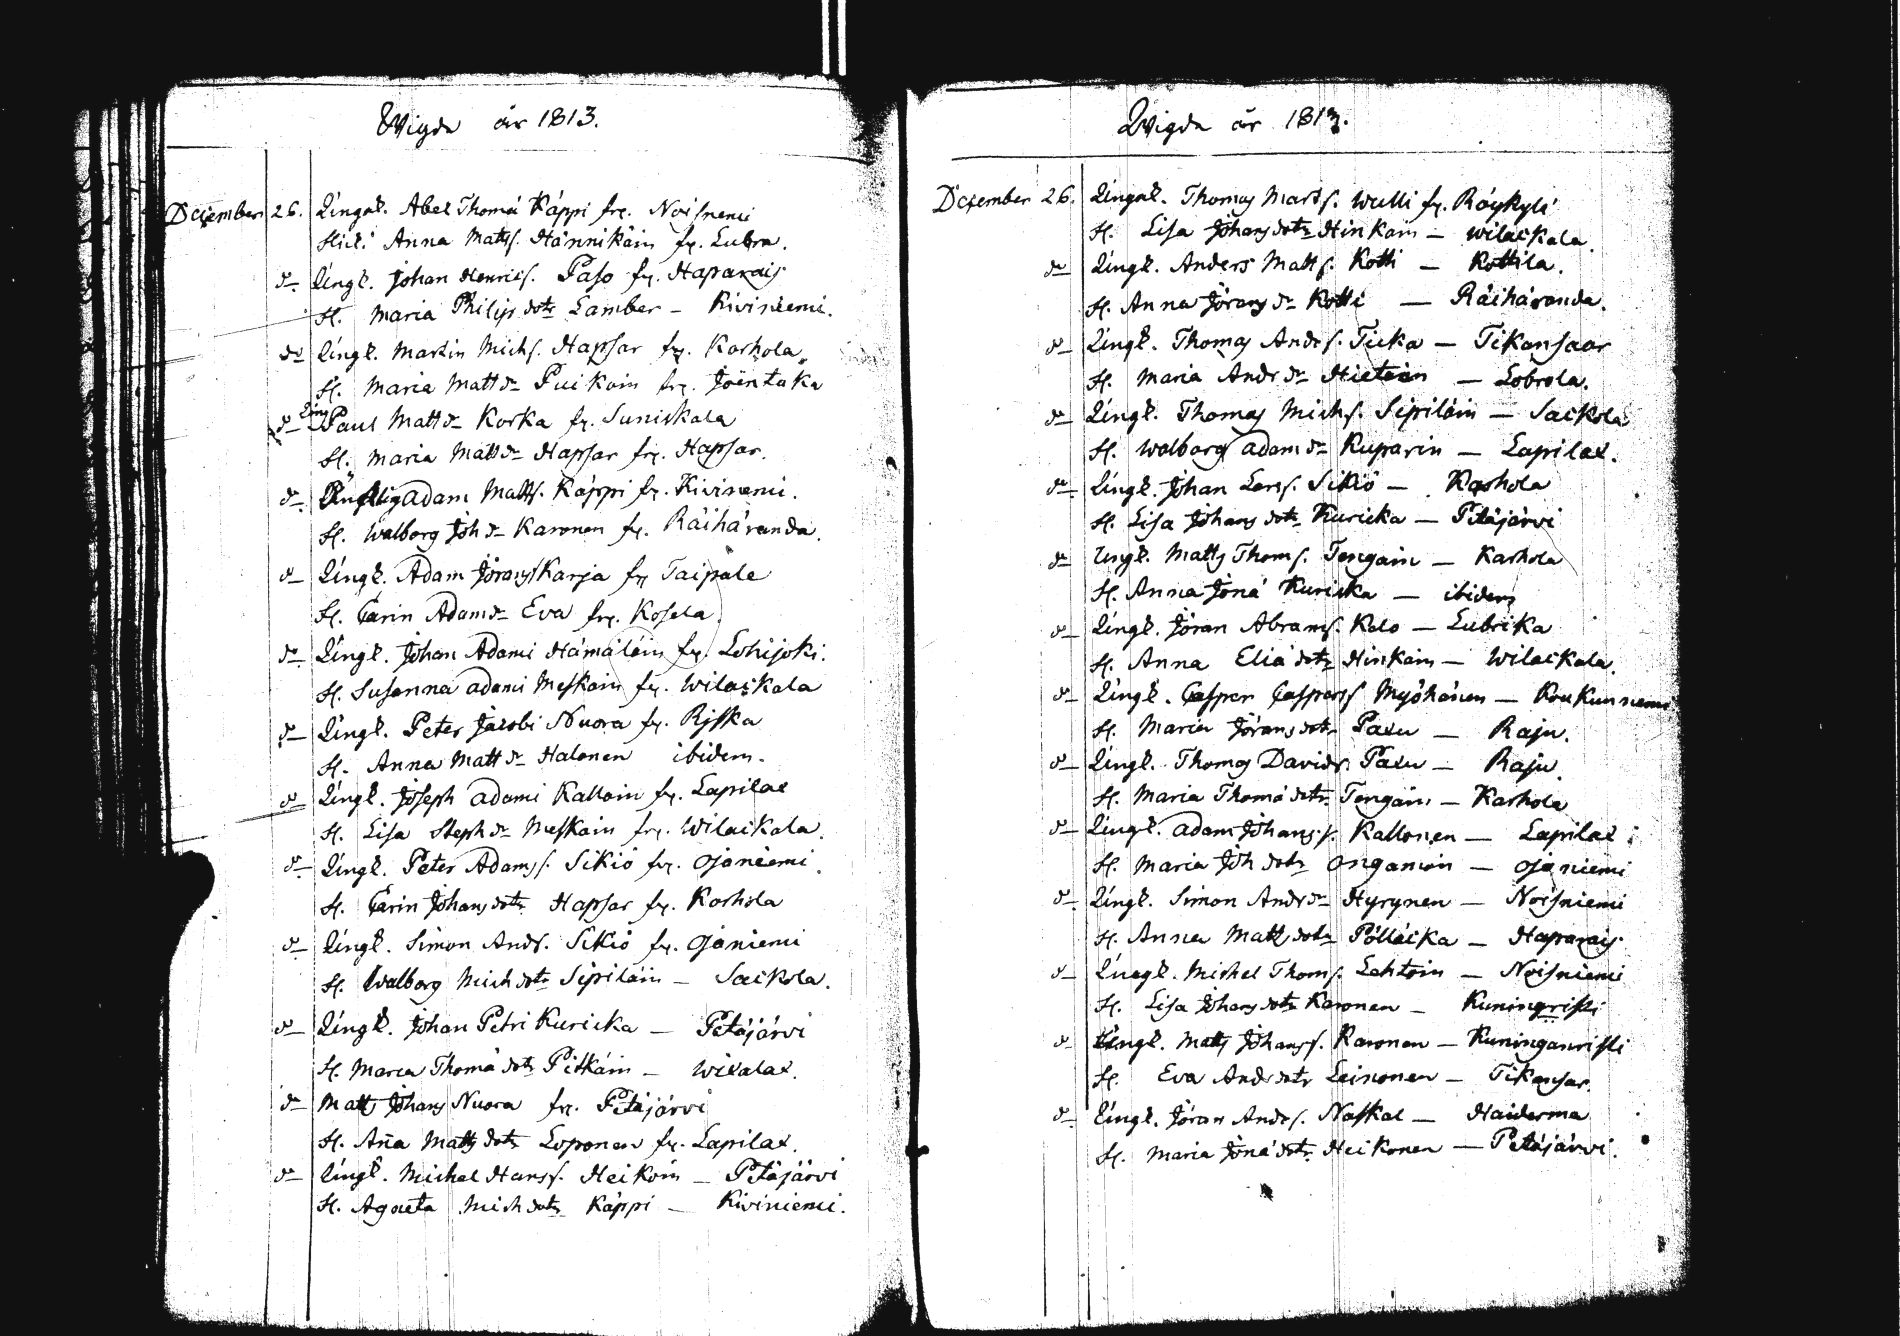 Wigda år 1813.
December 26. Üngal. Abel Thomæ Käppi frn. Noisnemi
Hust. Anna Matts. Hännikäin fr. Lubra.
do Üngl. Johan Henrics. Paso fr. Haparais
H. Maria Philips dotr Lamber – Kiviniemi.
do Üngl. Martin Michs. Hapsar fr. Karhola
H. Maria Matt dr Puikain fr. Joentaka
do Üng Paul Matt dr Korka fr. Suniskala
H. Maria Matt dr Hapsar fr. Hapsar.
do Adam Matts. Käppi fr. Kivinemi.
H. Walborg Joh dr Karonen fr. Räihäranda.
do Üngl. Adam Jörans Karja fr Taipale
H. Carin Adam dr Eva fr. Kosela
do Üngl. Johan Adami Hämäläin fr. Lohijoki.
H. Susanna Adami Meskain fr. Wilackala
do Üngl. Peter Jacobi Nuora fr. Rjska
H. Anna Matt dr Halonen ibidem.
do Üngl. Joseph Adami Kallain fr. Lapilax
H. Lisa Steph dr Meskain fr. Wilackala.
do Üngl. Peter Adams s. Sikiö fr. Ojaniemi.
H. Carin Johans dotr Hapsar fr. Karhola
do Üngl. Simon Ands. Sikiö fr. Ojaniemi
H. Walborg Mich dotr Sipiläin – Sackola.
do Üngl. Johan Petri Kuricka – Petäjärvi
H. Maria Thomæ dotr Pitkäin – Wixalax.
do Matts Johans Nuora fr. Petäjärvi
H. Ana Matts dotr Loponen fr. Lapilax.
do Üngl. Michel Hanss. Heikoin – Petäjärvi
H. Agneta Mich dotr Käppi – Kiviniemi.
Wigda år 1813.
December 26. Üngal. Thomas Marts. Wulli fr. Röykyli
H. Lisa Johans dotr Hinkain – Wilackala.
do Üngl. Anders Matts. Kotti – Kottila.
H. Anna Jörans dr Kotti – Räihäranda.
do Üngl. Thomas Ands. Ticka – Tikansaar
H. Maria Andr dr Hietain – Lobrola.
do Üngl. Thomas Michs. Sipiläin – Sackola
H. Walborg Adam dr Kuparin – Lapilax.
do Üngl. Johan Lars s. Sikiö – Karhola
H. Lisa Johans dotr Kuricka – Petäjärvi
do Üngl. Matts Thoms. Tengäin – Karhola
H. Anna Jonæ Kuricka – ibidem
do Üngl. Jöran Abrams. Kelo – Lubrika
H. Anna Eliæ dotr Hinkain – Wilackala.
do Üngl. Casper Caspers s Myöhänen – Roukunniemi
H. Maria Jörans dotr Paxu – Raju.
do Üngl. Thomas Davids. Paxu – Raju.
H. Maria Thomæ dotr Tengäin – Karhola
do Üngl. Adam Johans s. Kallonen – Lapilax
H. Maria Joh dotr Ongamoin – Ojaniemi
do Üngl. Simon Andr dr Hyrynen – Noisniemi
H. Anna Matts dotr Pölläcka – Haparais
do Üngl. Michel Thoms. Lehtoin – Noisniemi
H. Lisa Johans dotr Karonen – Kuningristi
do Üngl. Matts Johans s. Karonen – Kuninganristi
H. Eva Andr dotr Leinonen – Tikansar.
do Üngl. Jöran Ands. Naskal – Haiderma
H. Maria Jonæ dotr Heikonen – Petäjärvi.